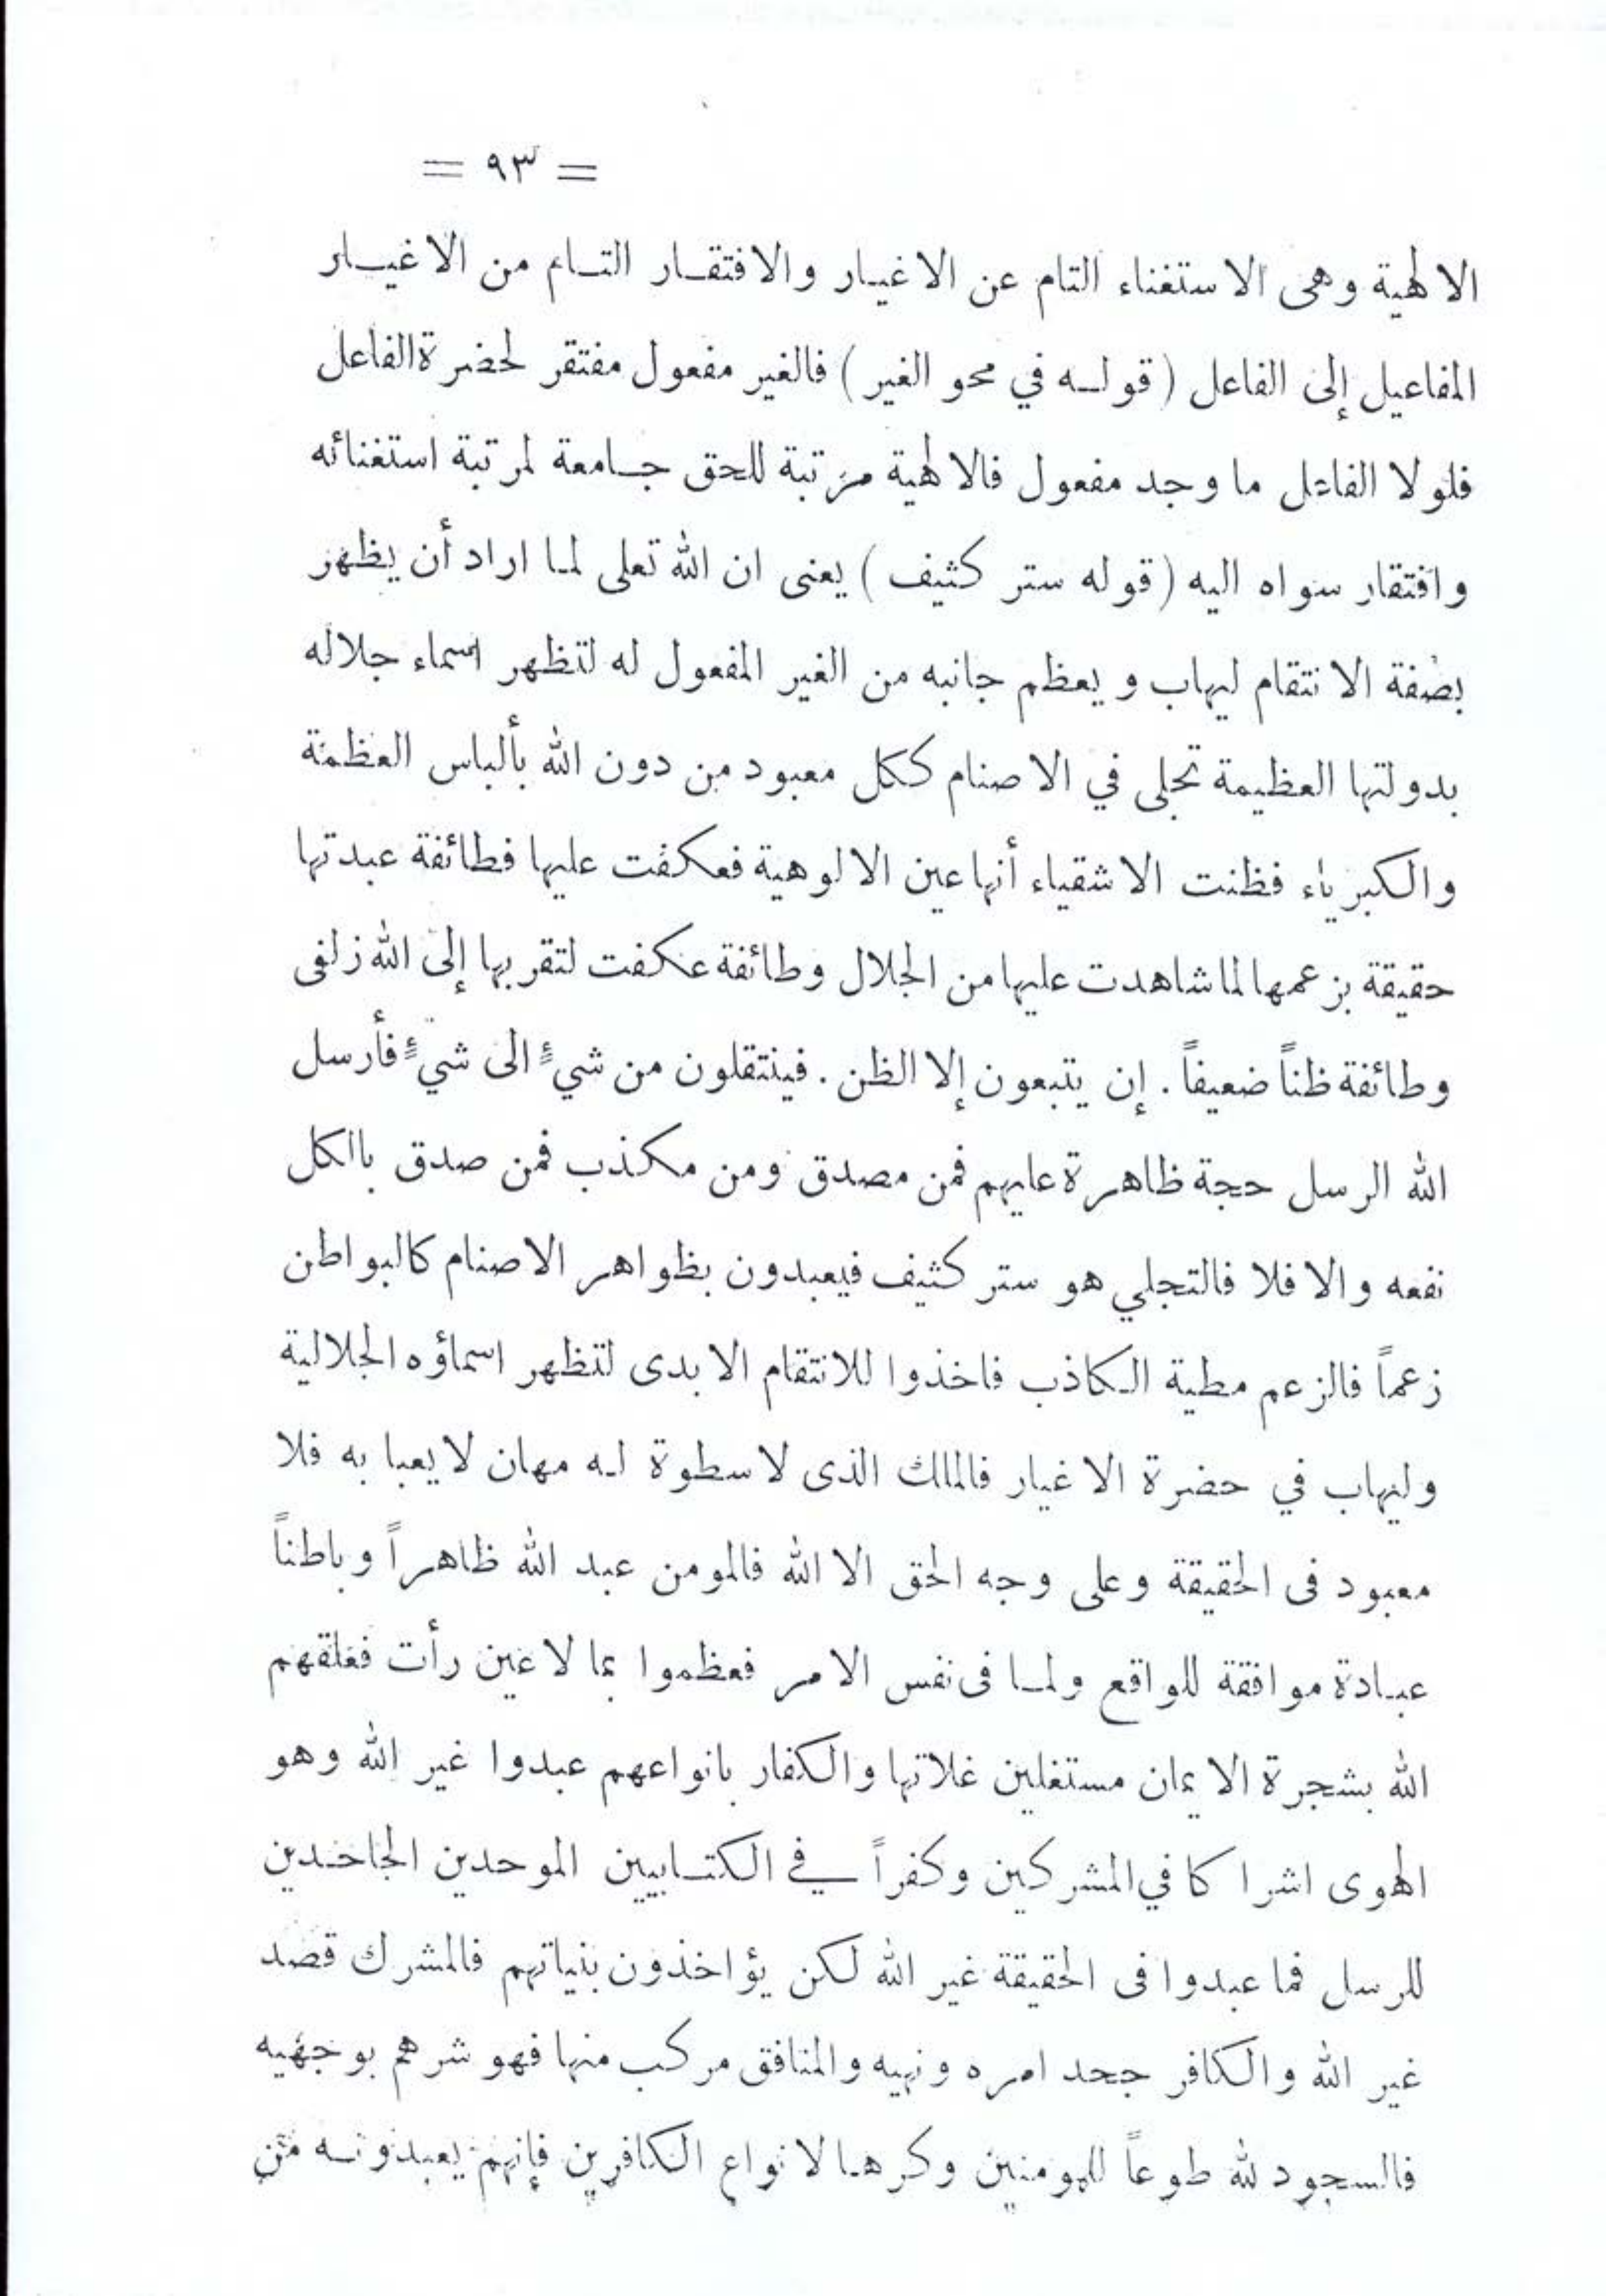 = ٩٣ =
الالهية وهى الاستغناء التام عن الاغيار والافتقار التام من الاغيار
المفاعيل إلى الفاعل ( قوله في محو الغير ) فالغير مفعول مفتقر لحضرة الفاعل
فلولا الفاعل ما وجد مفعول فالالهية مرتبة للحق جامعة لمرتبة استغنائه
وافتقار سواه اليه ( قوله ستر كثيف ) يعنى ان الله تعلى لما اراد أن يظهر
بصفة الانتقام ليهاب ويعظم جانبه من الغير المفعول له لتظهر اسماء جلاله
بدولتها العظيمة تجلى في الاصنام ككل معبود من دون الله بألباس العظمة
والكبرياء فظنت الاشقياء أنها عين الالوهية فعكفت عليها فطائفة عبدتها
حقيقة بزعمها لما شاهدت عليها من الجلال وطائفة عكفت لتقربها إلى الله زلفى
وطائفة ظناً ضعيفاً . إن يتبعون إلا الظن . فينتقلون من شيءٍ الى شيءٍ فأرسل
الله الرسل حجة ظاهرة عليهم فمن مصدق ومن مكذب فمن صدق بالكل
نفعه والا فلا فالتجلي هو ستر كثيف فيعبدون بظواهر الاصنام كالبواطن
زعماً فالزعم مطية الكاذب فاخذوا للانتقام الابدى لتظهر اسماؤه الجلالية
وليهاب في حضرة الاغيار فالملك الذى لا سطوة له مهان لا يعبا به فلا
معبود فى الحقيقة وعلى وجه الحق الا الله فالمومن عبد الله ظاهراً وباطناً
عبادة موافقة للواقع ولما فى نفس الامر فعظموا بما لا عين رأت فعلقهم
الله بشجرة الايمان مستغلين غلاتها والكفار بانواعهم عبدوا غير الله وهو
الهوى اشراكا في المشركين وكفراً في الكتابيين الموحدين الجاحدين
للرسل فما عبدوا فى الحقيقة غير الله لكن يؤاخذون بنياتهم فالمشرك قصد
غير الله والكافر جحد امره ونهيه والمنافق مركب منها فهو شرهم بوجهيه
فالسجود لله طوعاً للمومنين وكرها لانواع الكافرين فإنهم يعبدونه من